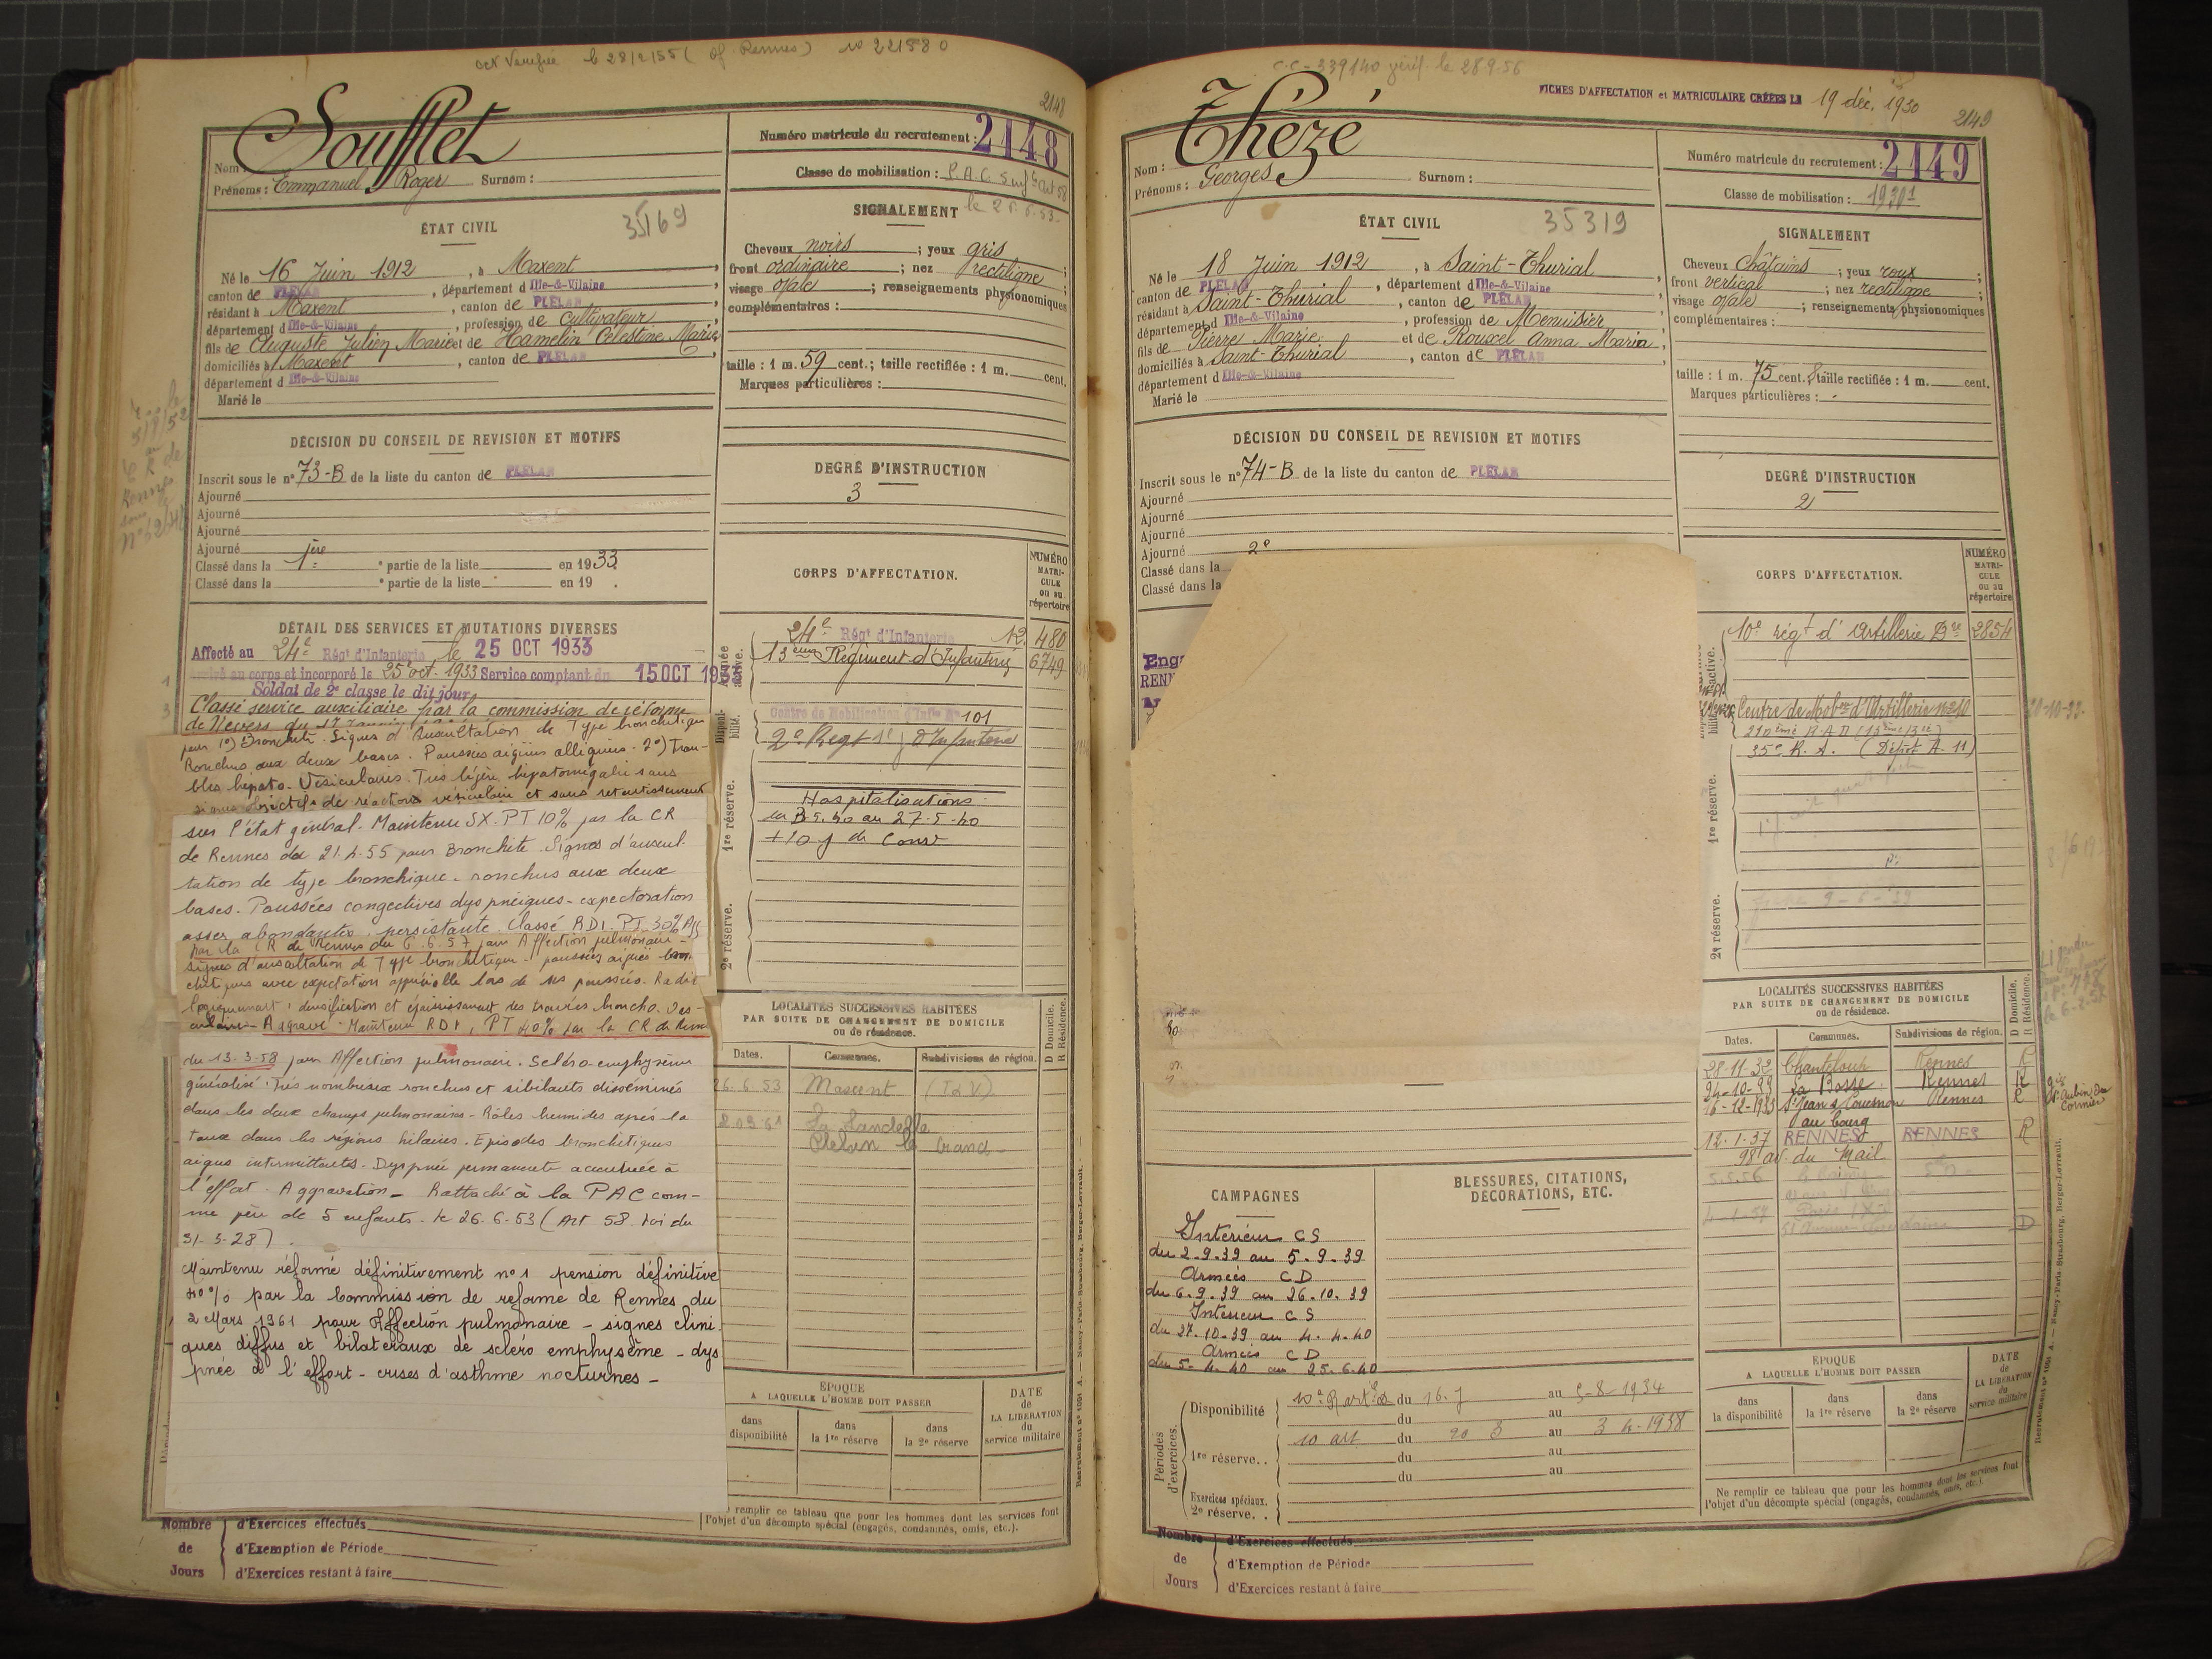 oct Vérifié le 28/2/55 (Of. Rennes) no 221580
2148
Soufflet
Nom :
Prénoms : Emmanuel Roger Surnom :
Numéro matricule du recrutement : 2148
Classe de mobilisation : P.A.C Suf Art 58
le 26.6.53
ÉTAT CIVIL
35169
Né le 16 Juin 1912, à Maxent,
canton de PLÉLAN, département d Ille-&-Vilaine,
résidant à Maxent, canton de PLÉLAN,
département d Ille-&-Vilaine, profession de Cultivateur,
fils de Auguste Julien Marie et de Hamelin Célestine Marie,
domiciliés à Maxent, canton de PLÉLAN,
département d Ille-&-Vilaine
Marié le
SIGNALEMENT
Cheveux noirs ; yeux gris ;
front ordinaire ; nez rectiligne ;
visage ovale ; renseignements physionomiques
complémentaires :
taille : 1 m. 59 cent.; taille rectifiée : 1 m. cent.
Marques particulières :
DÉCISION DU CONSEIL DE REVISION ET MOTIFS
Inscrit sous le n° 73-B de la liste du canton de PLÉLAN
Ajourné
Ajourné
Ajourné
Ajourné
Classé dans la 1ère partie de la liste en 1933.
Classé dans la ° partie de la liste en 19 .
DEGRÉ D'INSTRUCTION
3
5/9/52
Rennes
DÉTAIL DES SERVICES ET MUTATIONS DIVERSES
Affecté au 24e Régt d'Infanterie le 25 OCT 1933
arrivé au corps et incorporé le 25 oct. 1933 Service comptant du 15 OCT 1933
Soldat de 2e classe le dit jour
Classé service auxiliaire par la commission de réforme
de Nevers du 17
pour 1°) Bronchite. Signes d'auscultation de Type bronchitique
Ronchus aux deux bases. Poussées aigües alléguées. 2°) Trou-
bles hépato-Vésiculaires. Très légère hépatomégalie sans
signes objectifs de réaction vésiculaire et sans retentissement
sur l'état général. Maintenu SX. PT 10% par la CR
de Rennes du 21.4.55 pour Bronchite. Signes d'auscul-
tation de type bronchique - ronchus aux deux
bases. Poussées congestives dyspnéiques - expectoration
assez abondante, persistante. Classé RD1. PT 30% Agg
par la CR de Rennes du 6.6.57 pour Affection pulmonaire -
signes d'auscultation de Type bronchitique - poussées aiguës bron
chitiques avec expectation appréciable lors de ses poussées. Radio
logiquement : densification et épaississement des travées broncho-Vas-
culaires - Aggravé - Maintenu RD1, PT 40% par la CR de Rennes
du 13-3-58 pour Affection pulmonaire. Scléro-emphysème
généralisé. Très nombreux ronchus et sibilants disséminés
dans les deux champs pulmonaires - Râles humides après la
toux dans les régions hilaires. Episodes bronchitiques
aigus intermittents - Dyspnée permanente accentuée à
l'effort - Aggravation - Rattaché à la PAC com-
me père de 5 enfants. le 26.6-53 (Art 58 Loi du
31-3-28).
Maintenu réformé définitivement n°1 pension définitive
40% par la Commission de reforme de Rennes du
2 Mars 1961 pour Affection pulmonaire - signes clini-
ques diffus et bilatéraux de scléro emphysème - dys
pnée à l'effort - crises d'asthme nocturnes -
CORPS D'AFFECTATION.
NUMÉRO MATRI- CULE ou au répertoire
Armée active.
24e Régt d'Infanterie 12. 480
13ème Régiment d'Infanterie 6749
Disponi- bilité.
Centre de Mobilisation d'Infie N° 101
2e Regt d'Infanterie
1re réserve.
Hospitalisations
du 3.5.40 au 27-5-40
+ 10 j de Conv
2e réserve.
LOCALITÉS SUCCESSIVES HABITÉES
PAR SUITE DE CHANGEMENT DE DOMICILE
ou de résidence.
Dates. Communes. Subdivisions de région. D Domicile. R Résidence.
26.6.53 Maxent (I&V)
La Landelle
Plelan le Grand -
EPOQUE
A LAQUELLE L'HOMME DOIT PASSER
dans disponibilité
dans la 1re réserve
dans la 2e réserve
DATE de LA LIBÉRATION du service militaire
remplir ce tableau que pour les hommes dont les services font
l'objet d'un décompte spécial (engagés, condamnés, omis, etc.).
Nombre de Jours
d'Exercices effectués
d'Exemption de Période
d'Exercices restant à faire
C.C - 339140 vérif. le 28.9.56
FICHES D'AFFECTATION et MATRICULAIRE CRÉÉES LE 19 déc. 1930
2149
Thézé
Nom :
Prénoms : Georges Surnom :
Numéro matricule du recrutement : 2149
Classe de mobilisation : 1930 1
ÉTAT CIVIL
35319
Né le 18 Juin 1912, à Saint-Thurial,
canton de PLÉLAN, département d Ille-&-Vilaine
résidant à Saint-Thurial, canton de PLÉLAN
département d Ille-&-Vilaine, profession de Menuisier,
fils de Pierre Marie et de Rouxel Anna Maria,
domiciliés à Saint-Thurial, canton de PLÉLAN
département d Ille-&-Vilaine
Marié le
SIGNALEMENT
Cheveux châtains ; yeux roux ;
front vertical ; nez rectiligne ;
visage ovale ; renseignements physionomiques
complémentaires :
taille : 1 m. 75 cent.; taille rectifiée : 1 m. cent.
Marques particulières : -
DÉCISION DU CONSEIL DE REVISION ET MOTIFS
Inscrit sous le n° 74-B de la liste du canton de PLÉLAN
Ajourné
Ajourné
Ajourné
Ajourné
2e
Classé dans la
Classé dans la
Eng
RENN
DEGRÉ D'INSTRUCTION
2
CORPS D'AFFECTATION.
NUMÉRO MATRI- CULE ou au répertoire
10e régt d'Artillerie Dre 2854
Centre de Mobon d'Artillerie n°210
210ème R.A.D (15ème Bie)
35e R.A. (Dépôt A. 11)
1re réserve.
2e réserve.
LOCALITÉS SUCCESSIVES HABITÉES
PAR SUITE DE CHANGEMENT DE DOMICILE
ou de résidence.
Dates. Communes. Subdivisions de région. D Domicile. R Résidence.
28-11-32 Chanteloup Rennes R
24-10-33 La Bosse Rennes R
16-12-1933 St Jean s/ Couesnon Rennes R
au bourg
St Aubin du Cormier
12.1.37 RENNES RENNES R
98 av. du Mail
5.5.56
4-1-57 Paris IX D
CAMPAGNES
Intérieur CS
du 2-9-39 au 5-9-39
Armées CD
du 6-9-39 au 26.10.39
Intérieur CS
du 27-10-39 au 4-4-40
Armées CD
du 5-4-40 au 25.6.40
BLESSURES, CITATIONS,
DÉCORATIONS, ETC.
Périodes d'exercices.
Disponibilité 10e R artie du 16.7 au 5-8-1934
du au
1re réserve.. 10 art du 20 3 au 3 4-1938
du au
du au
Exercices spéciaux.
2e réserve. .
ÉPOQUE
A LAQUELLE L'HOMME DOIT PASSER
dans la disponibilité
dans la 1re réserve
dans la 2e réserve
DATE de LA LIBÉRATION du service militaire
Ne remplir ce tableau que pour les hommes dont les services font
l'objet d'un décompte spécial (engagés, condamnés, omis, etc.).
Nombre de Jours
d'Exercices effectués
d'Exemption de Période
d'Exercices restant à faire